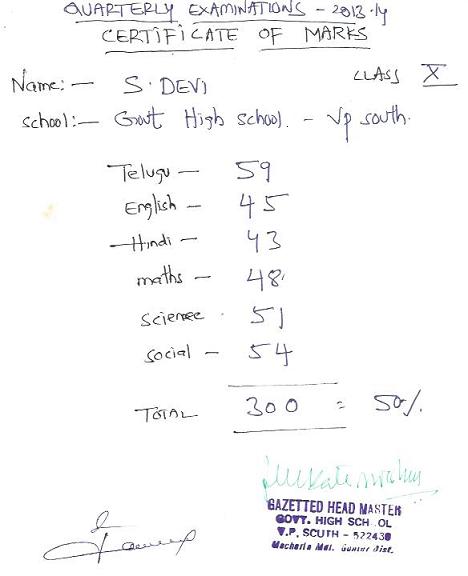 QUARTERLY EXAMINATIONS - 2013-14
CERTIFICATE OF MARKS
Name:- S. DEVI CLASS X
School:- Govt High school. - Vp south.
Telugu - 59
English - 45
Hindi - 43
maths - 48
science - 51
social - 54
TOTAL 300 = 50%
GAZETTED HEAD MASTER
GOVT. HIGH SCHOOL
V.P. SOUTH - 522438
Macherla Mdl. Guntur Dist.